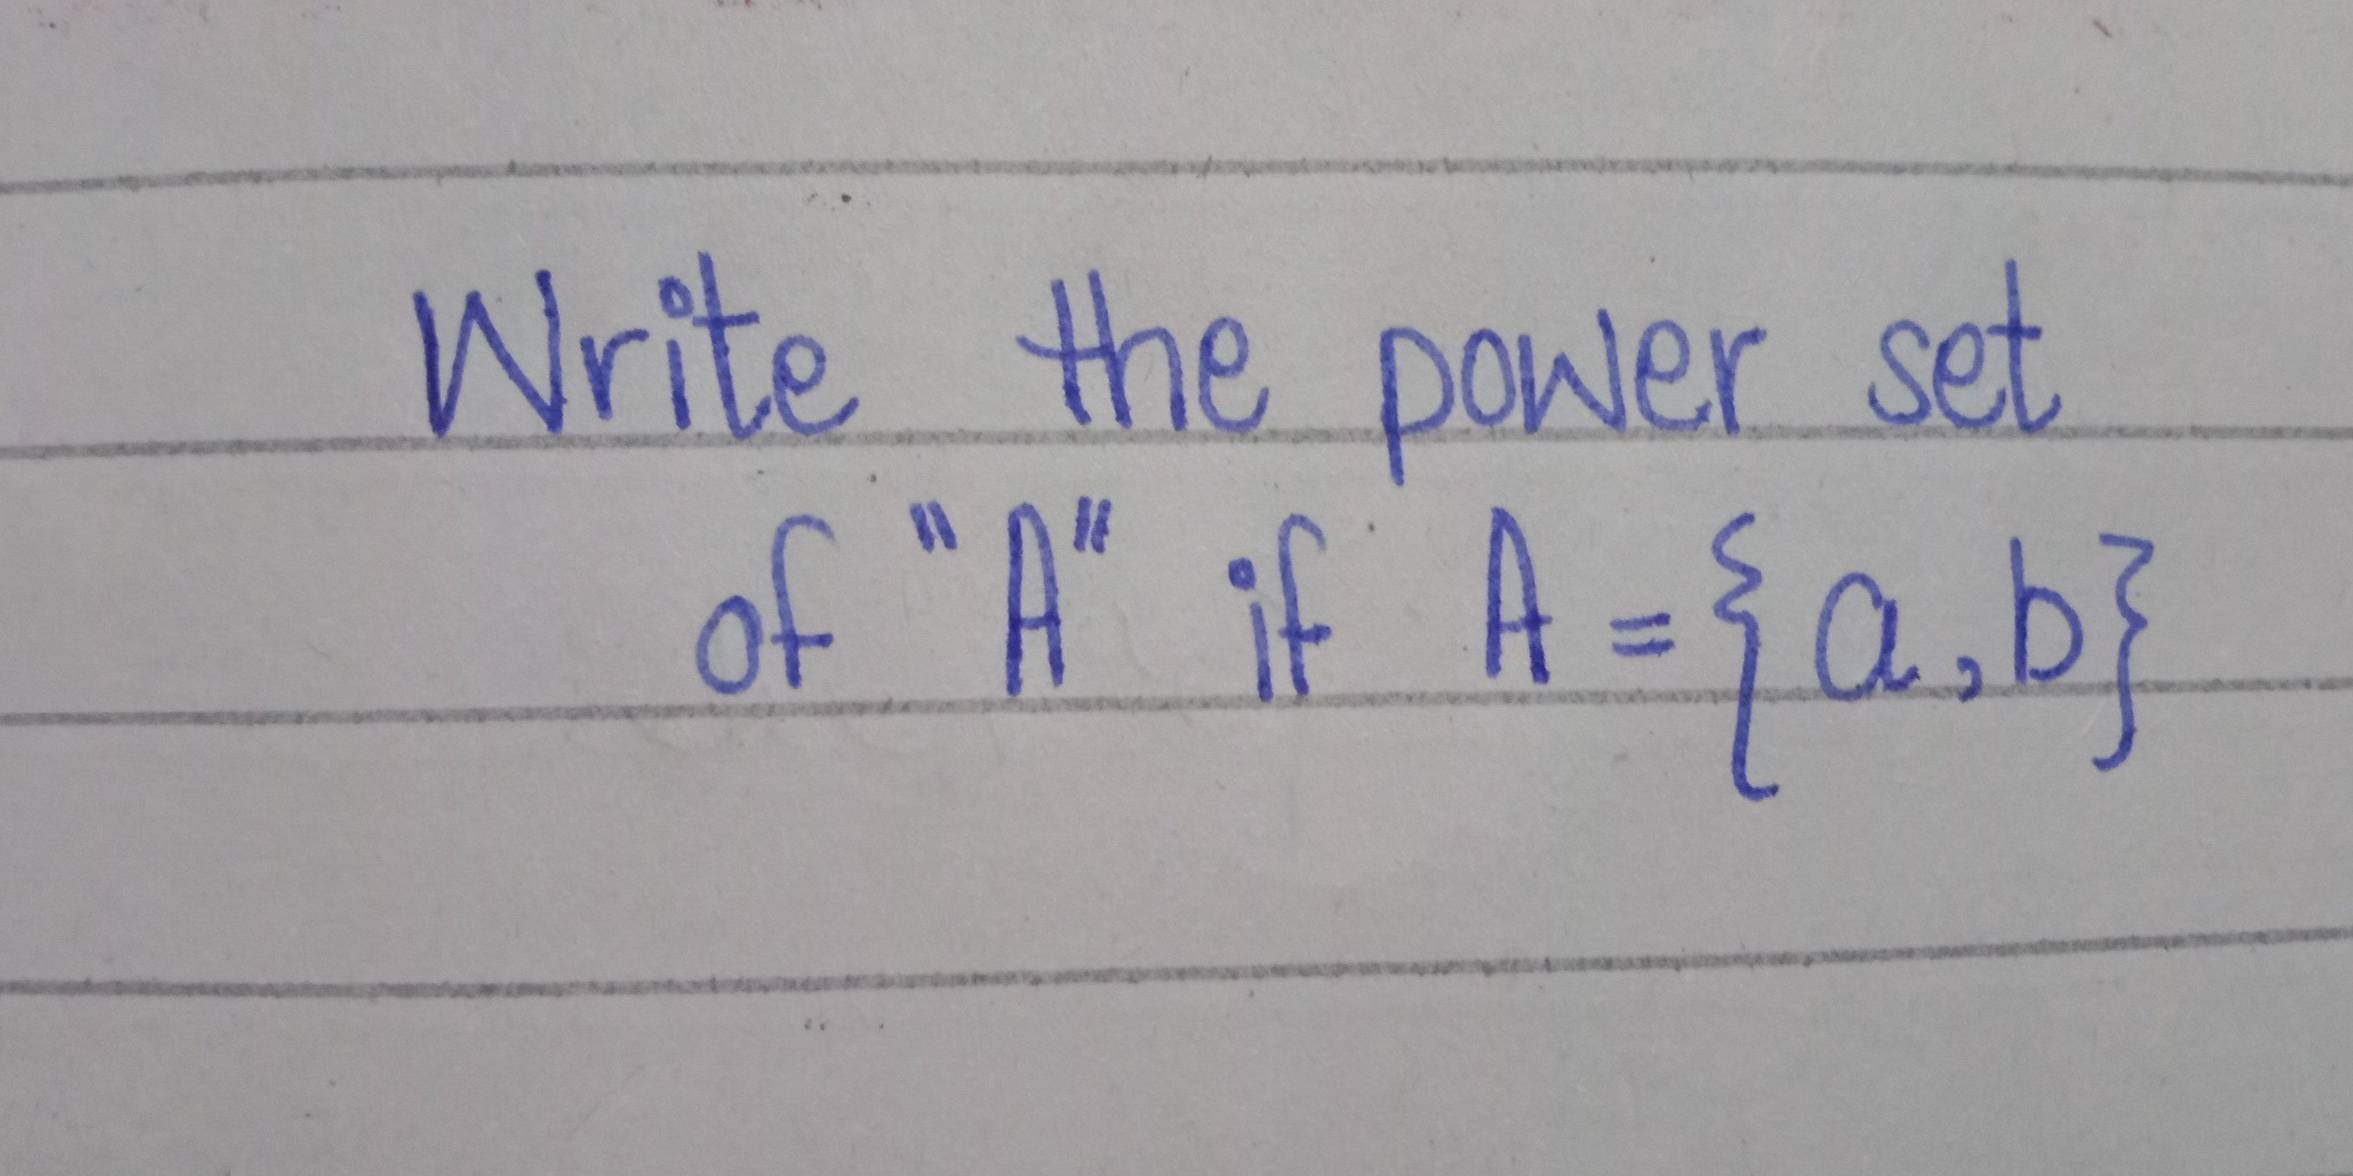 Write the power set
of "A" if A = {a, b}